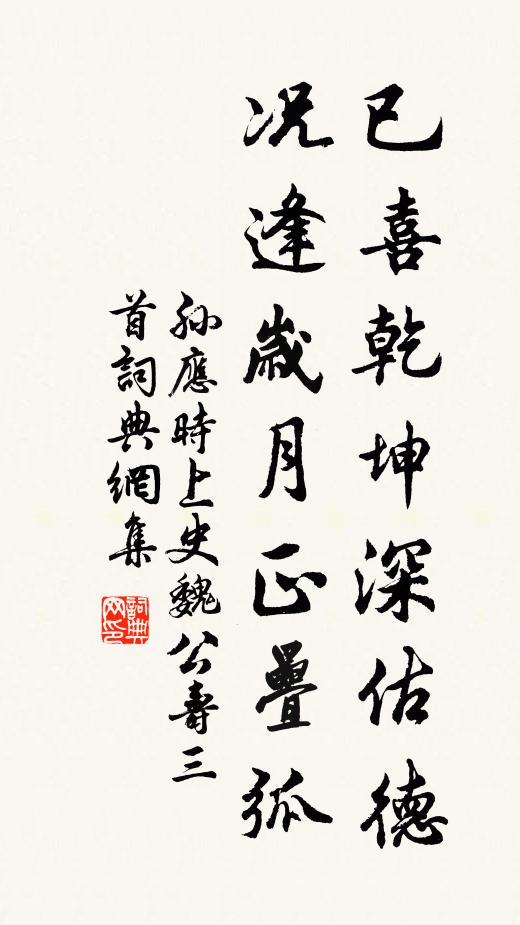 已喜乾坤深估德
况逢歲月正疊弧
孫應時上史魏公壽三
首詞典網集
詞典
网印